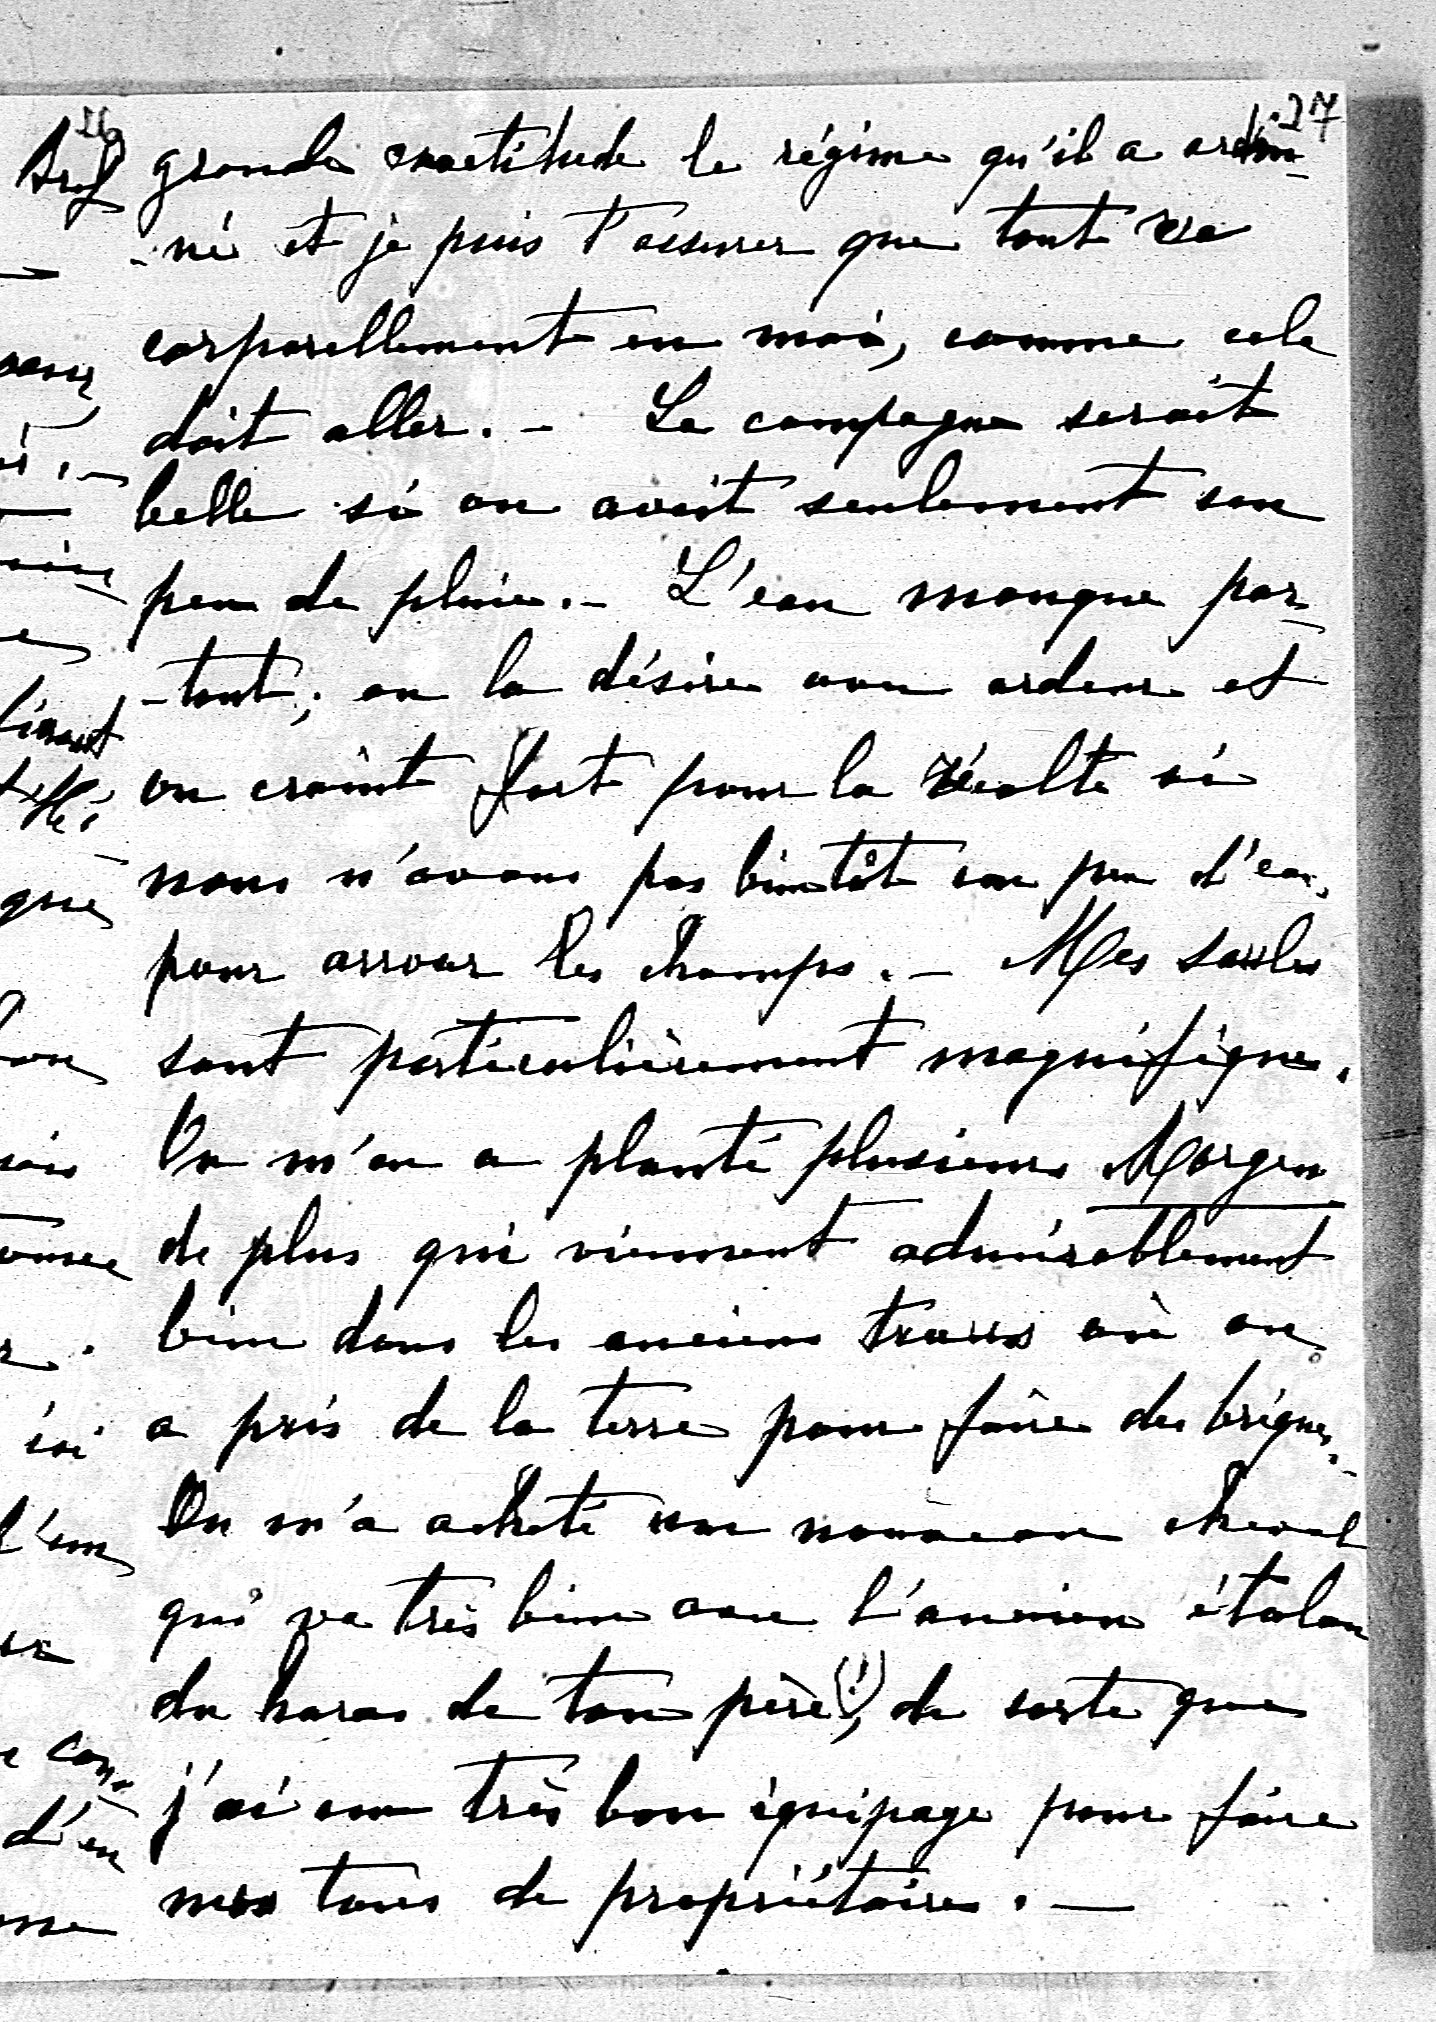 27
grande exactitude le régime qu'il a ordon-
-né et je puis t'assurer que tout va
corporellement en moi, comme cela
doit aller. - La campagne serait
belle si on avait seulement un
peu de pluie. - L'eau manque par-
-tout; on la désire avec ardeur et
on craint fort pour la récolte si
nous n'avons pas bientôt un peu d'eau
pour arroser les champs. - Mes saules
sont particulièrement magnifiques.
On m'en a planté plusieurs Morgen
de plus qui viennent admirablement
bien dans les anciens trous où on
a pris de la terre pour faire des briques. -
On m'a acheté un nouveau cheval
qui va très bien avec l'ancien étalon
du haras de ton père (!), de sorte que
j'ai un très bon équipage pour faire
mes tours de propriétaire. -